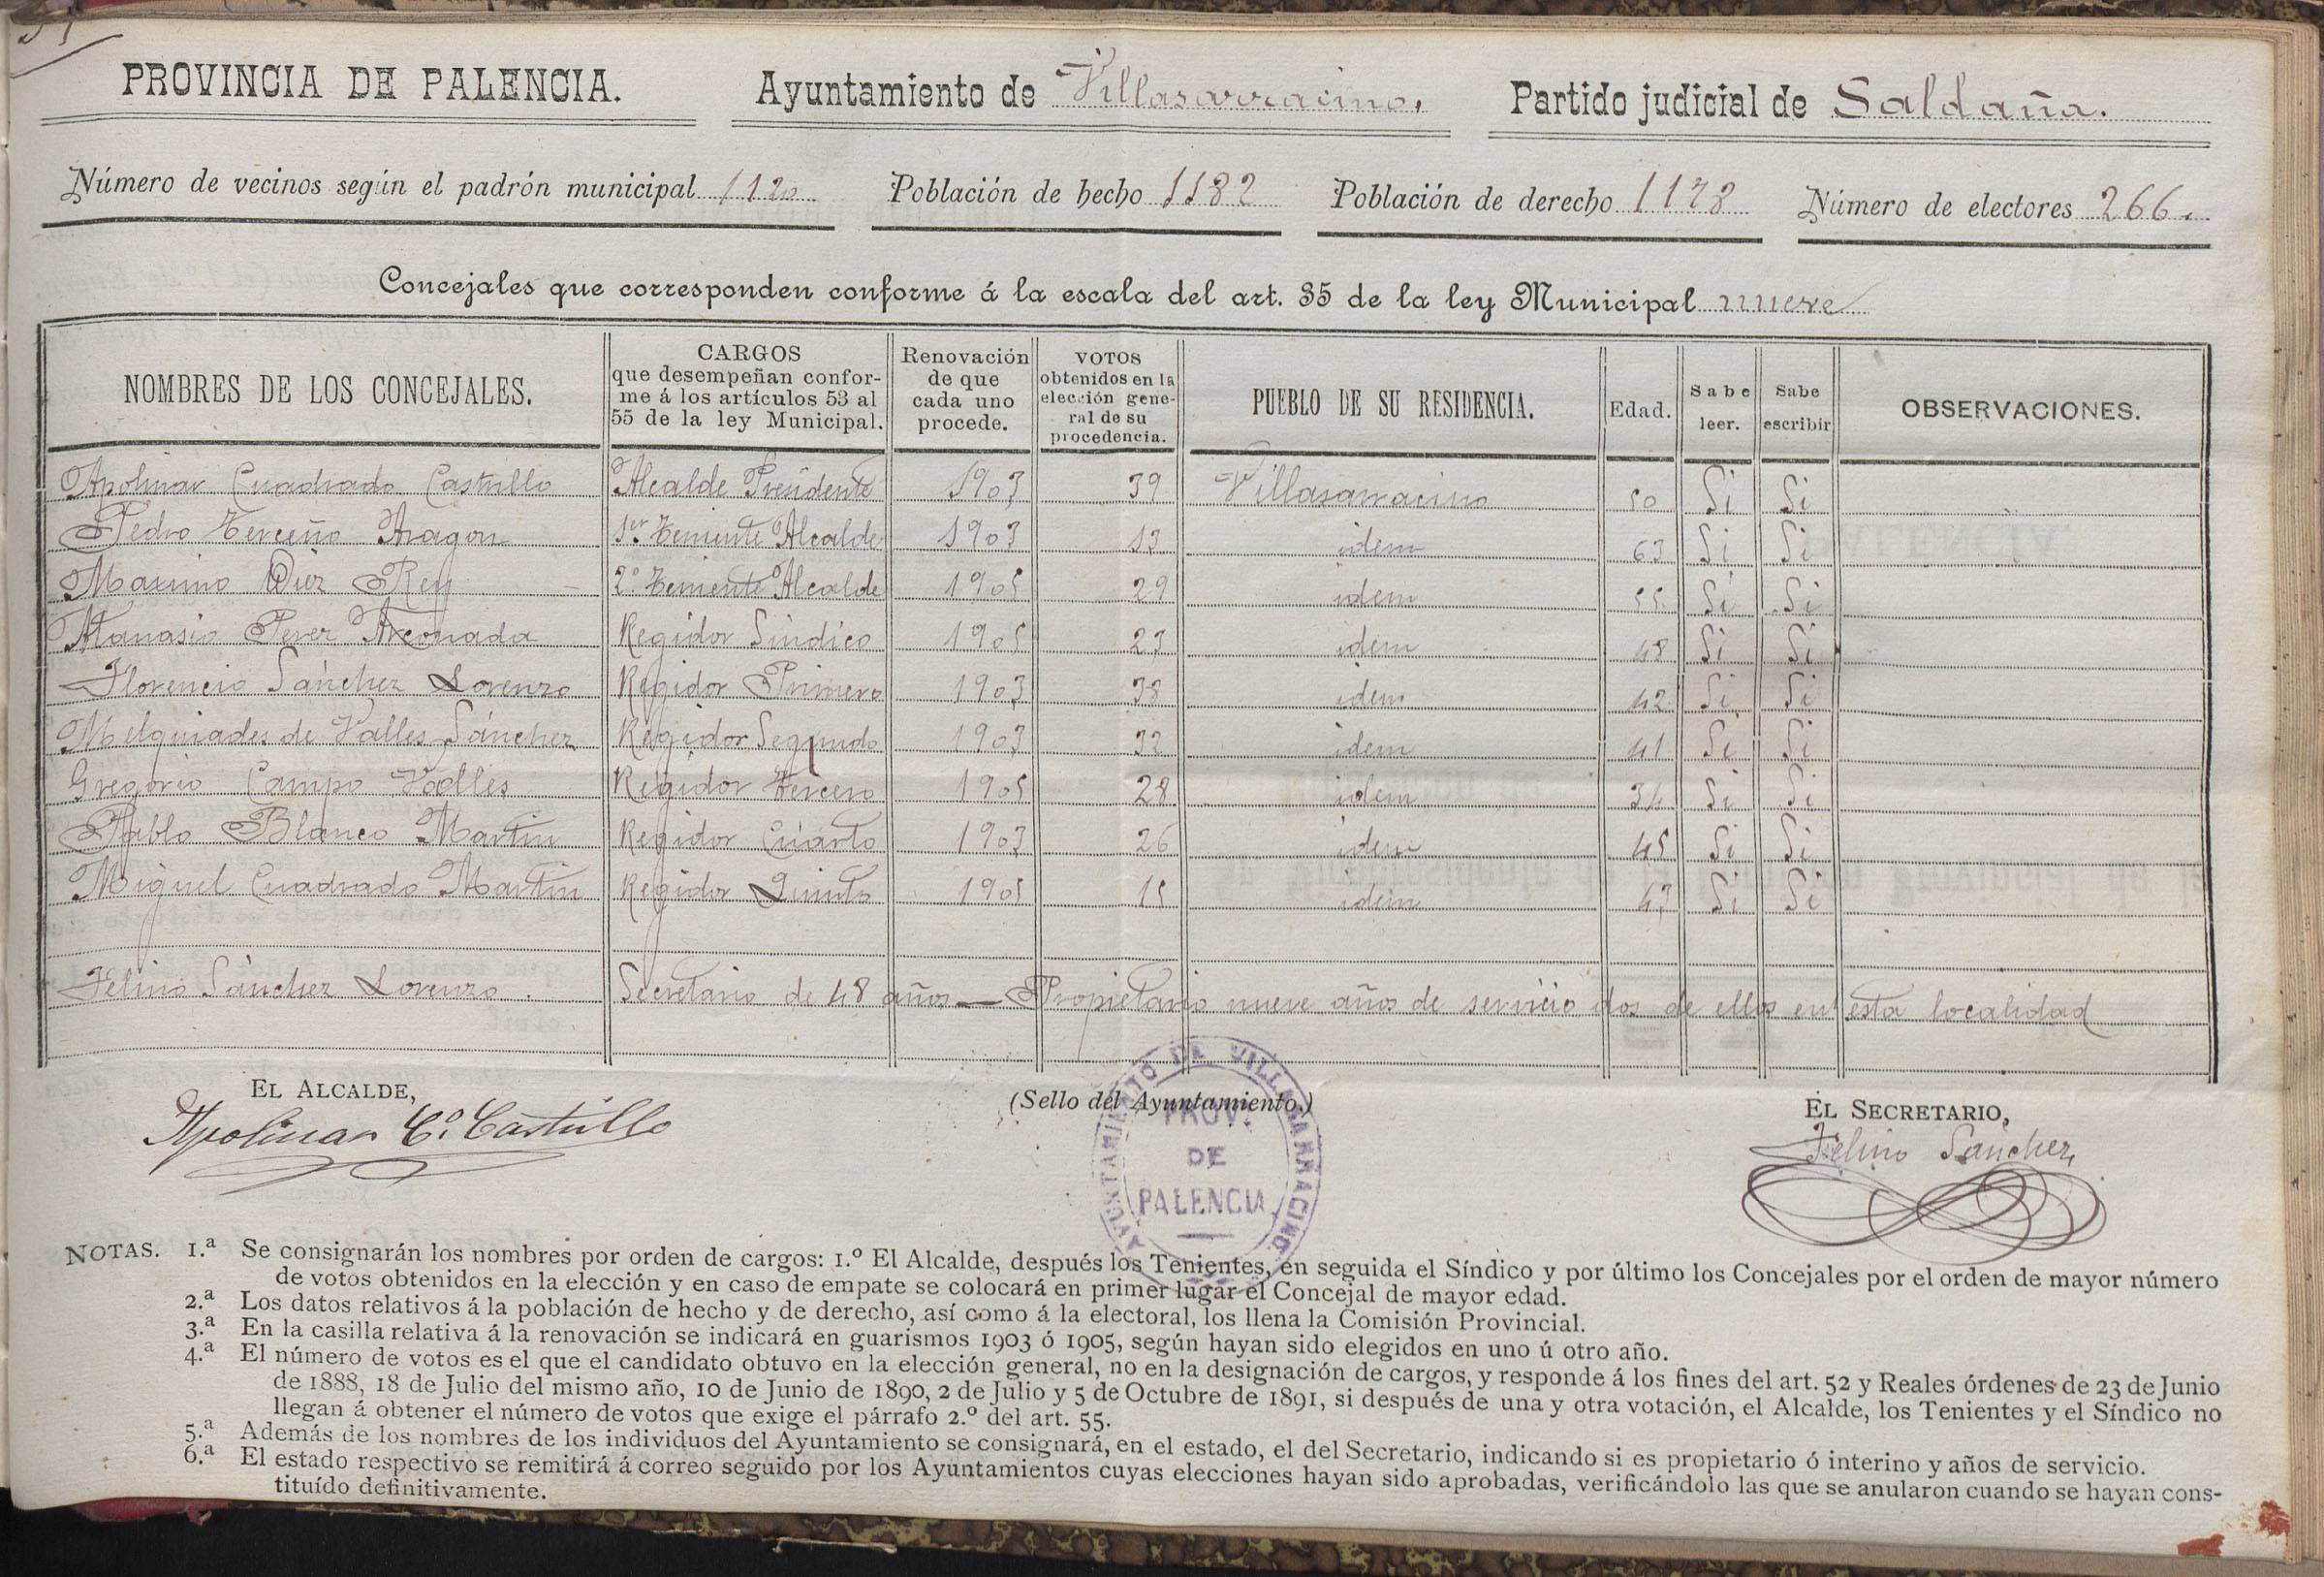 PROVINCIA DE PALENCIA. Ayuntamiento de Villasarracino. Partido judicial de Saldaña.
Número de vecinos según el padrón municipal 1120 Población de hecho 1182 Población de derecho 1178 Número de electores 266.
Concejales que corresponden conforme á la escala del art. 35 de la ley Municipal nueve
NOMBRES DE LOS CONCEJALES. CARGOS que desempeñan conforme á los artículos 53 al 55 de la ley Municipal. Renovación de que cada uno procede. VOTOS obtenidos en la elección general de su procedencia. PUEBLO DE SU RESIDENCIA. Edad. Sabe leer. Sabe escribir OBSERVACIONES.
Apolinar Cuadrado Castrillo Alcalde Presidente 1903 39 Villasarracino 50 Si Si
Pedro Terceño Aragon 1er Teniente Alcalde 1903 13 idem 63 Si Si
Maximo Diez Rey 2º Teniente Alcalde 1905 29 idem 55 Si Si
Atanasio Perez Arconada Regidor Sindico 1905 23 idem 48 Si Si
Florencio Sánchez Lorenzo Regidor Primero 1903 38 idem 42 Si Si
Melquiades de Valles Sánchez Regidor Segundo 1903 32 idem 41 Si Si
Gregorio Campo Valles Regidor Tercero 1905 28 idem 34 Si Si
Pablo Blanco Martin Regidor Cuarto 1903 26 idem 45 Si Si
Miguel Cuadrado Martin Regidor Quinto 1905 15 idem 43 Si Si
Felino Sánchez Lorenzo. Secretario de 48 años — Propietario nueve años de servicio dos de ellos en esta localidad
EL ALCALDE, (Sello del Ayuntamiento.) EL SECRETARIO,
Apolinar Cº. Castrillo Felino Sanchez
AYUNTAMIENTO DE VILLASARRACINO
PROV.
DE
PALENCIA
NOTAS. 1.ª Se consignarán los nombres por orden de cargos: 1.º El Alcalde, después los Tenientes, en seguida el Síndico y por último los Concejales por el orden de mayor número
de votos obtenidos en la elección y en caso de empate se colocará en primer lugar el Concejal de mayor edad.
2.ª Los datos relativos á la población de hecho y de derecho, así como á la electoral, los llena la Comisión Provincial.
3.ª En la casilla relativa á la renovación se indicará en guarismos 1903 ó 1905, según hayan sido elegidos en uno ú otro año.
4.ª El número de votos es el que el candidato obtuvo en la elección general, no en la designación de cargos, y responde á los fines del art. 52 y Reales órdenes de 23 de Junio
de 1888, 18 de Julio del mismo año, 10 de Junio de 1890, 2 de Julio y 5 de Octubre de 1891, si después de una y otra votación, el Alcalde, los Tenientes y el Síndico no
llegan á obtener el número de votos que exige el párrafo 2.º del art. 55.
5.ª Además de los nombres de los individuos del Ayuntamiento se consignará, en el estado, el del Secretario, indicando si es propietario ó interino y años de servicio.
6.ª El estado respectivo se remitirá á correo seguido por los Ayuntamientos cuyas elecciones hayan sido aprobadas, verificándolo las que se anularon cuando se hayan cons-
tituído definitivamente.